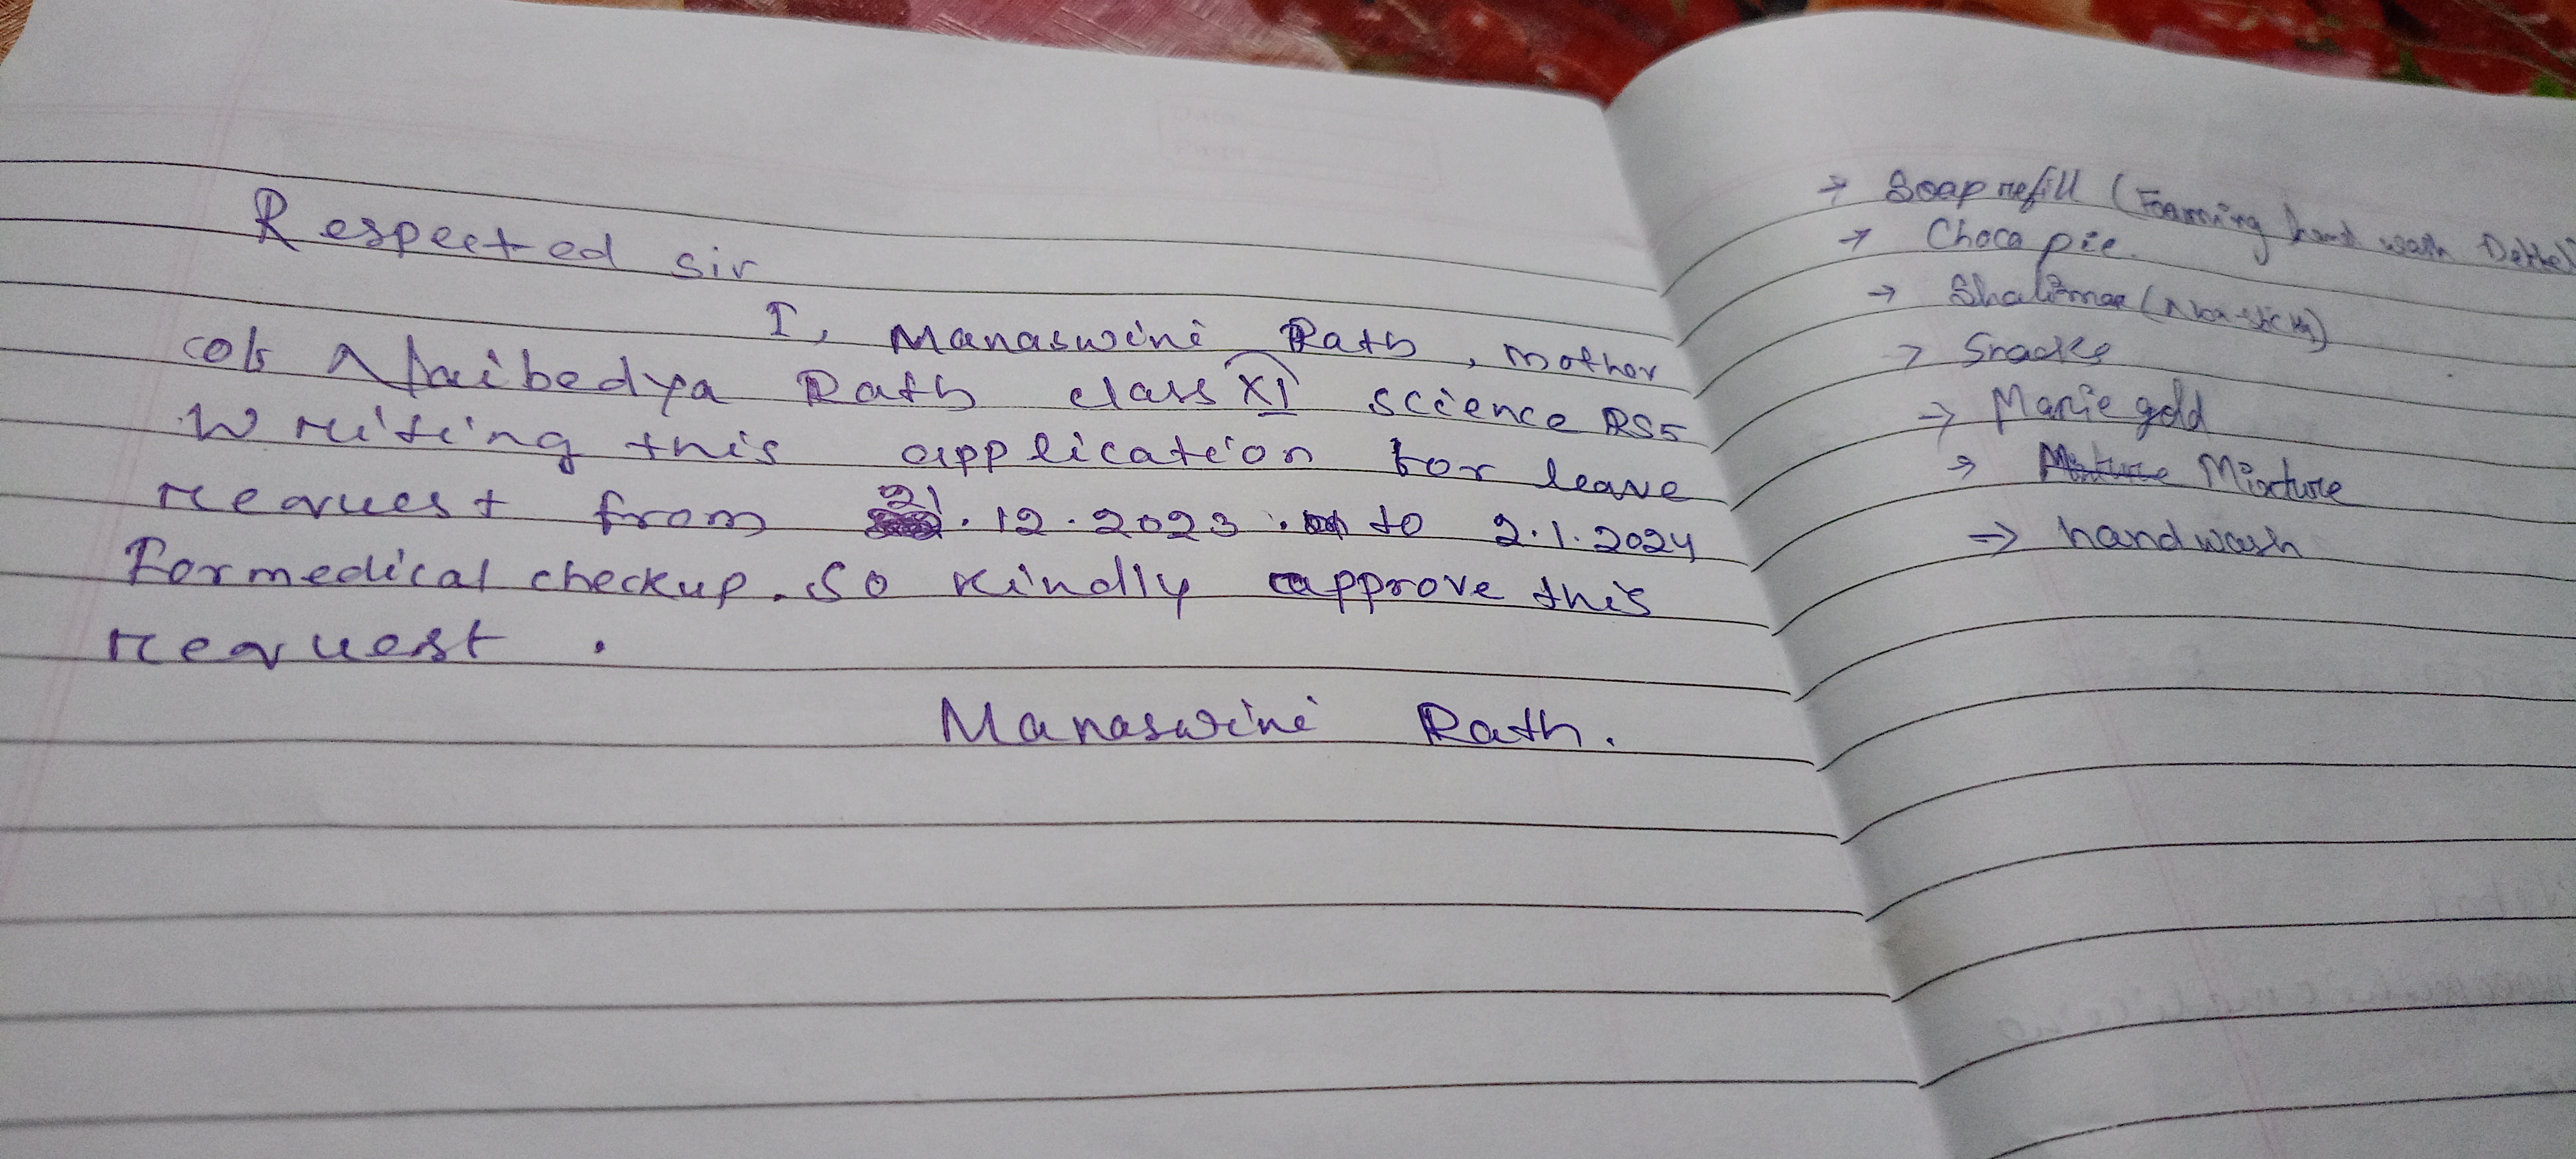 Respected sir
I, Manaswini Rath, mother
of Naibedya Rath class XI science RS5
Writing this application for leave
request from 21.12.2023 to 2.1.2024
For medical checkup. So kindly approve this
request.
Manaswini Rath.
→ Soap refill (Foaming hand wash Dettol)
→ Choco pie.
→ Shalimar (
→ Snacks
→ Marie gold
→ Mixture Mixture
⇒ handwash